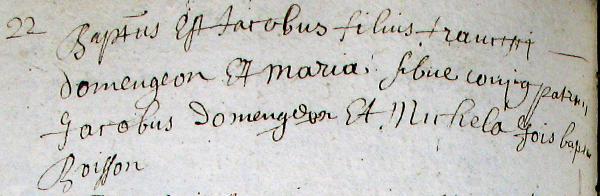 22 Baptus Est Jacobus filius francisci
domengeon Et maria sibue conjug patrin
Jacobus domengeon Et Michela
Boisson